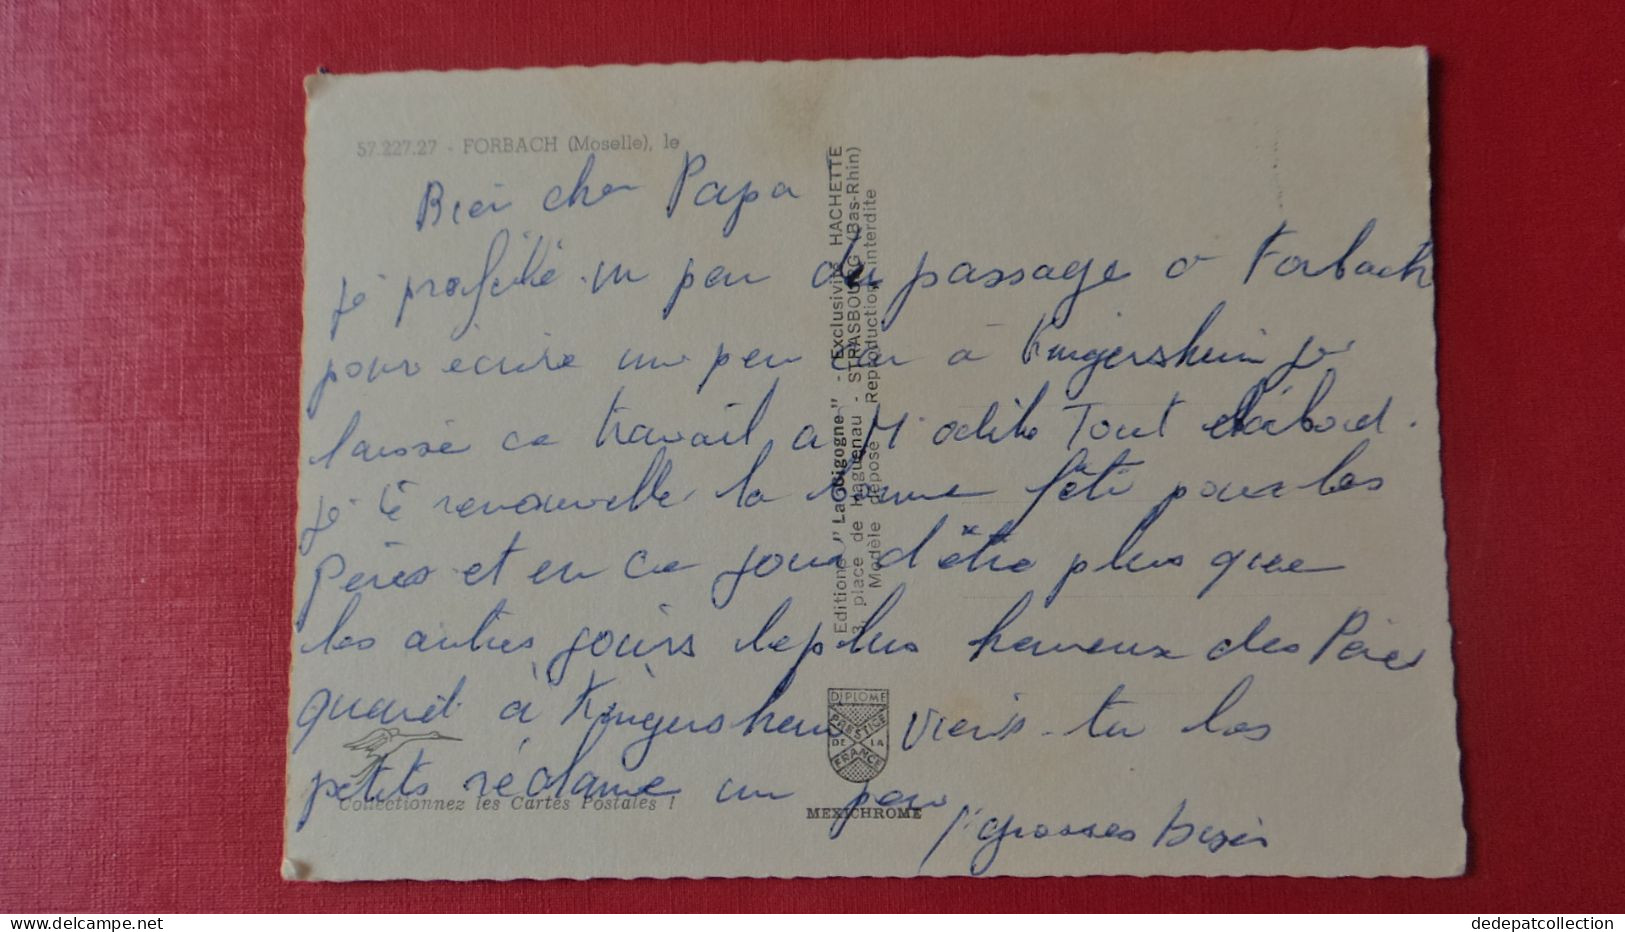 57.227.27 - FORBACH (Moselle), le
Bien cher Papa
je profite un peu du passage a Forbach
pour écrire un peu car à Kingersheim je
laisse ce travail a M Tout d'abord.
je te renouvelle la bonne fête pour les
Pères et en ce jour d'être plus que
les autres jours le plus heureux des Pères
quand à Kingersheim viens-tu les
petits réclame un peu
grosses bises
Collectionnez les Cartes Postales !
Editions "La Cigogne" - Exclusivité HACHETTE
3, place de Haguenau - STRASBOURG (Bas-Rhin)
Modèle déposé Reproduction interdite
DIPLOME
PRESTIGE
DE LA
FRANCE
MEXICHROME
dedepatcollection